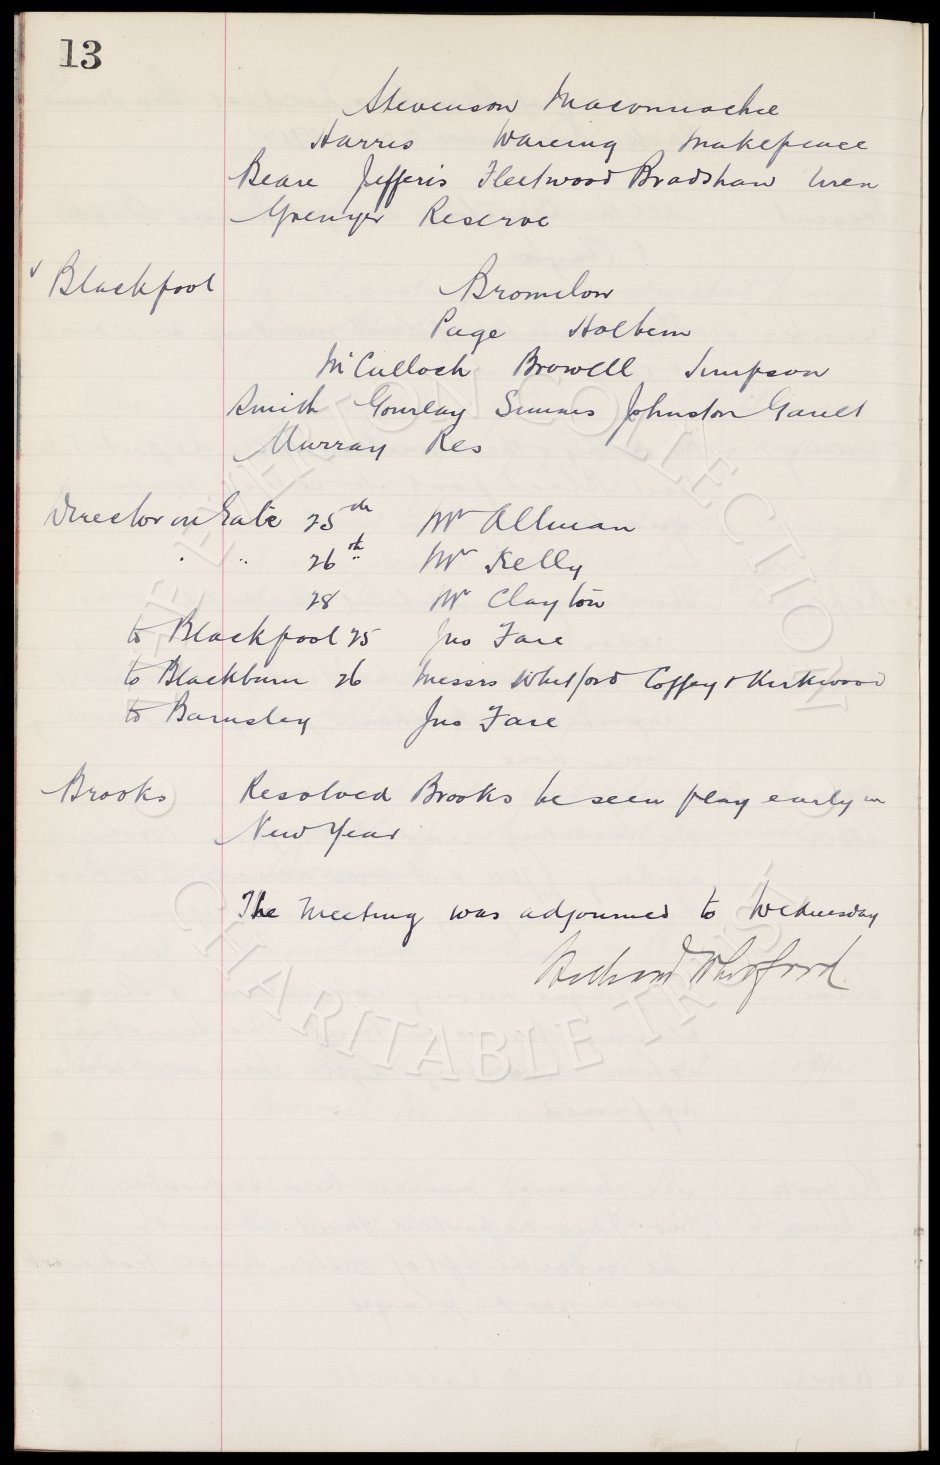 13
Stevenson Maconnachie
Harris Wareing Makepeace
Beare Jefferis Fleetwood Bradshaw Wren
Grenyer Reserve
√ Blackpool Bromilow
Page Holbem
McCulloch Browell Simpson
Smith Gourlay Simms Johnston Gault
Murray Res
Director on Gate 25th Mr Allman
" " 26th Mr Kelly
28 Mr Clayton
to Blackpool 25 Jno Fare
to Blackburn 26 Messrs Whitford Coffey & Kirkwood
to Barnsley Jno Fare
Brooks Resolved Brooks be seen play early in
New Year
The Meeting was adjourned to Wednesday
Richard Whitford
THE EVERTON COLLECTION
CHARITABLE TRUST